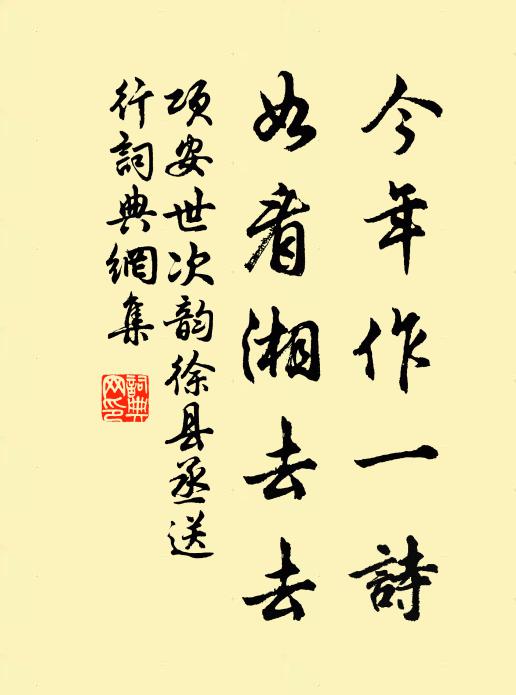 今年作一詩
如看湘去去
项安世次韵徐县丞送
行詞典網集
詞典網印